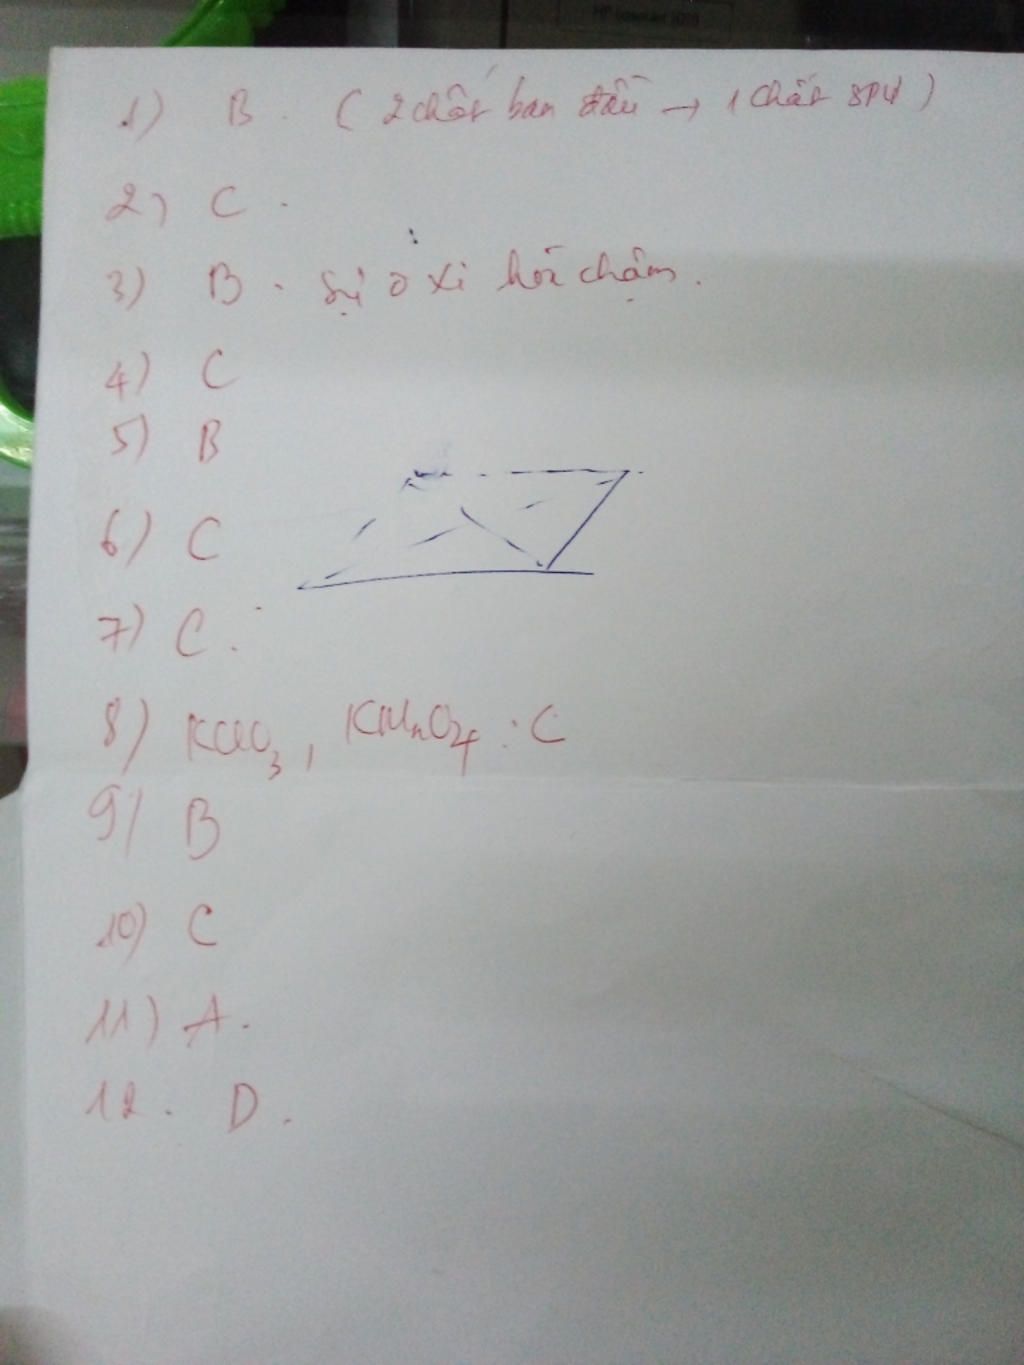 HP LaserJet
1) B. ( 2 chất ban đầu → 1 chất SPƯ )
2) C.
3) B. Sự ô xi hóa chậm.
4) C
5) B
6) C
7) C.
8) KClO3, KMnO4 : C
9) B
10) C
11) A.
12. D.